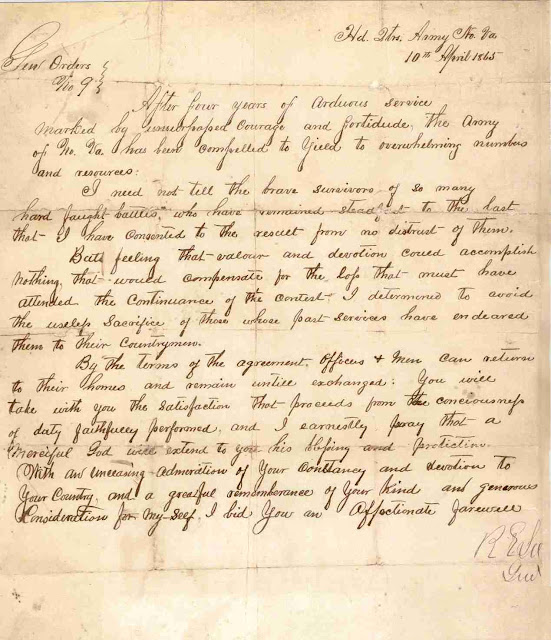 Hd. Qtrs. Army No. Va.
10th April 1865
Gen Orders
No 9
After four years of Arduous service
marked by unsurpassed Courage and fortidude, the Army
of No. Va. has been compelled to Yield to overwhelming numbers
and resources.
I need not tell the brave survivors of so many
hard faught battles, who have remained steadfast to the last
that I have Consented to the result from no distrust of them.
But feeling that valour and devotion could accomplish
nothing that would compensate for the Loss that must have
attended the Continuance of the contest I determined to avoid
the useless Sacrifice of those whose past services have endeared
them to their Countrymen.
By the terms of the agreement, Officers & Men can return
to their homes and remain untill exchanged: You will
take with you the Satisfaction that proceeds from the conciousness
of duty faithfully performed, and I earnestly pray that a
Merciful God will extend to you his blessing and protiction.
With an unceasing admiration of Your Constancy and devotion to
Your Country, and a greatful rememberance of Your Kind and generous
Consideration for My-Self. I bid You an Affectionate farewell
R E Lee
Genl